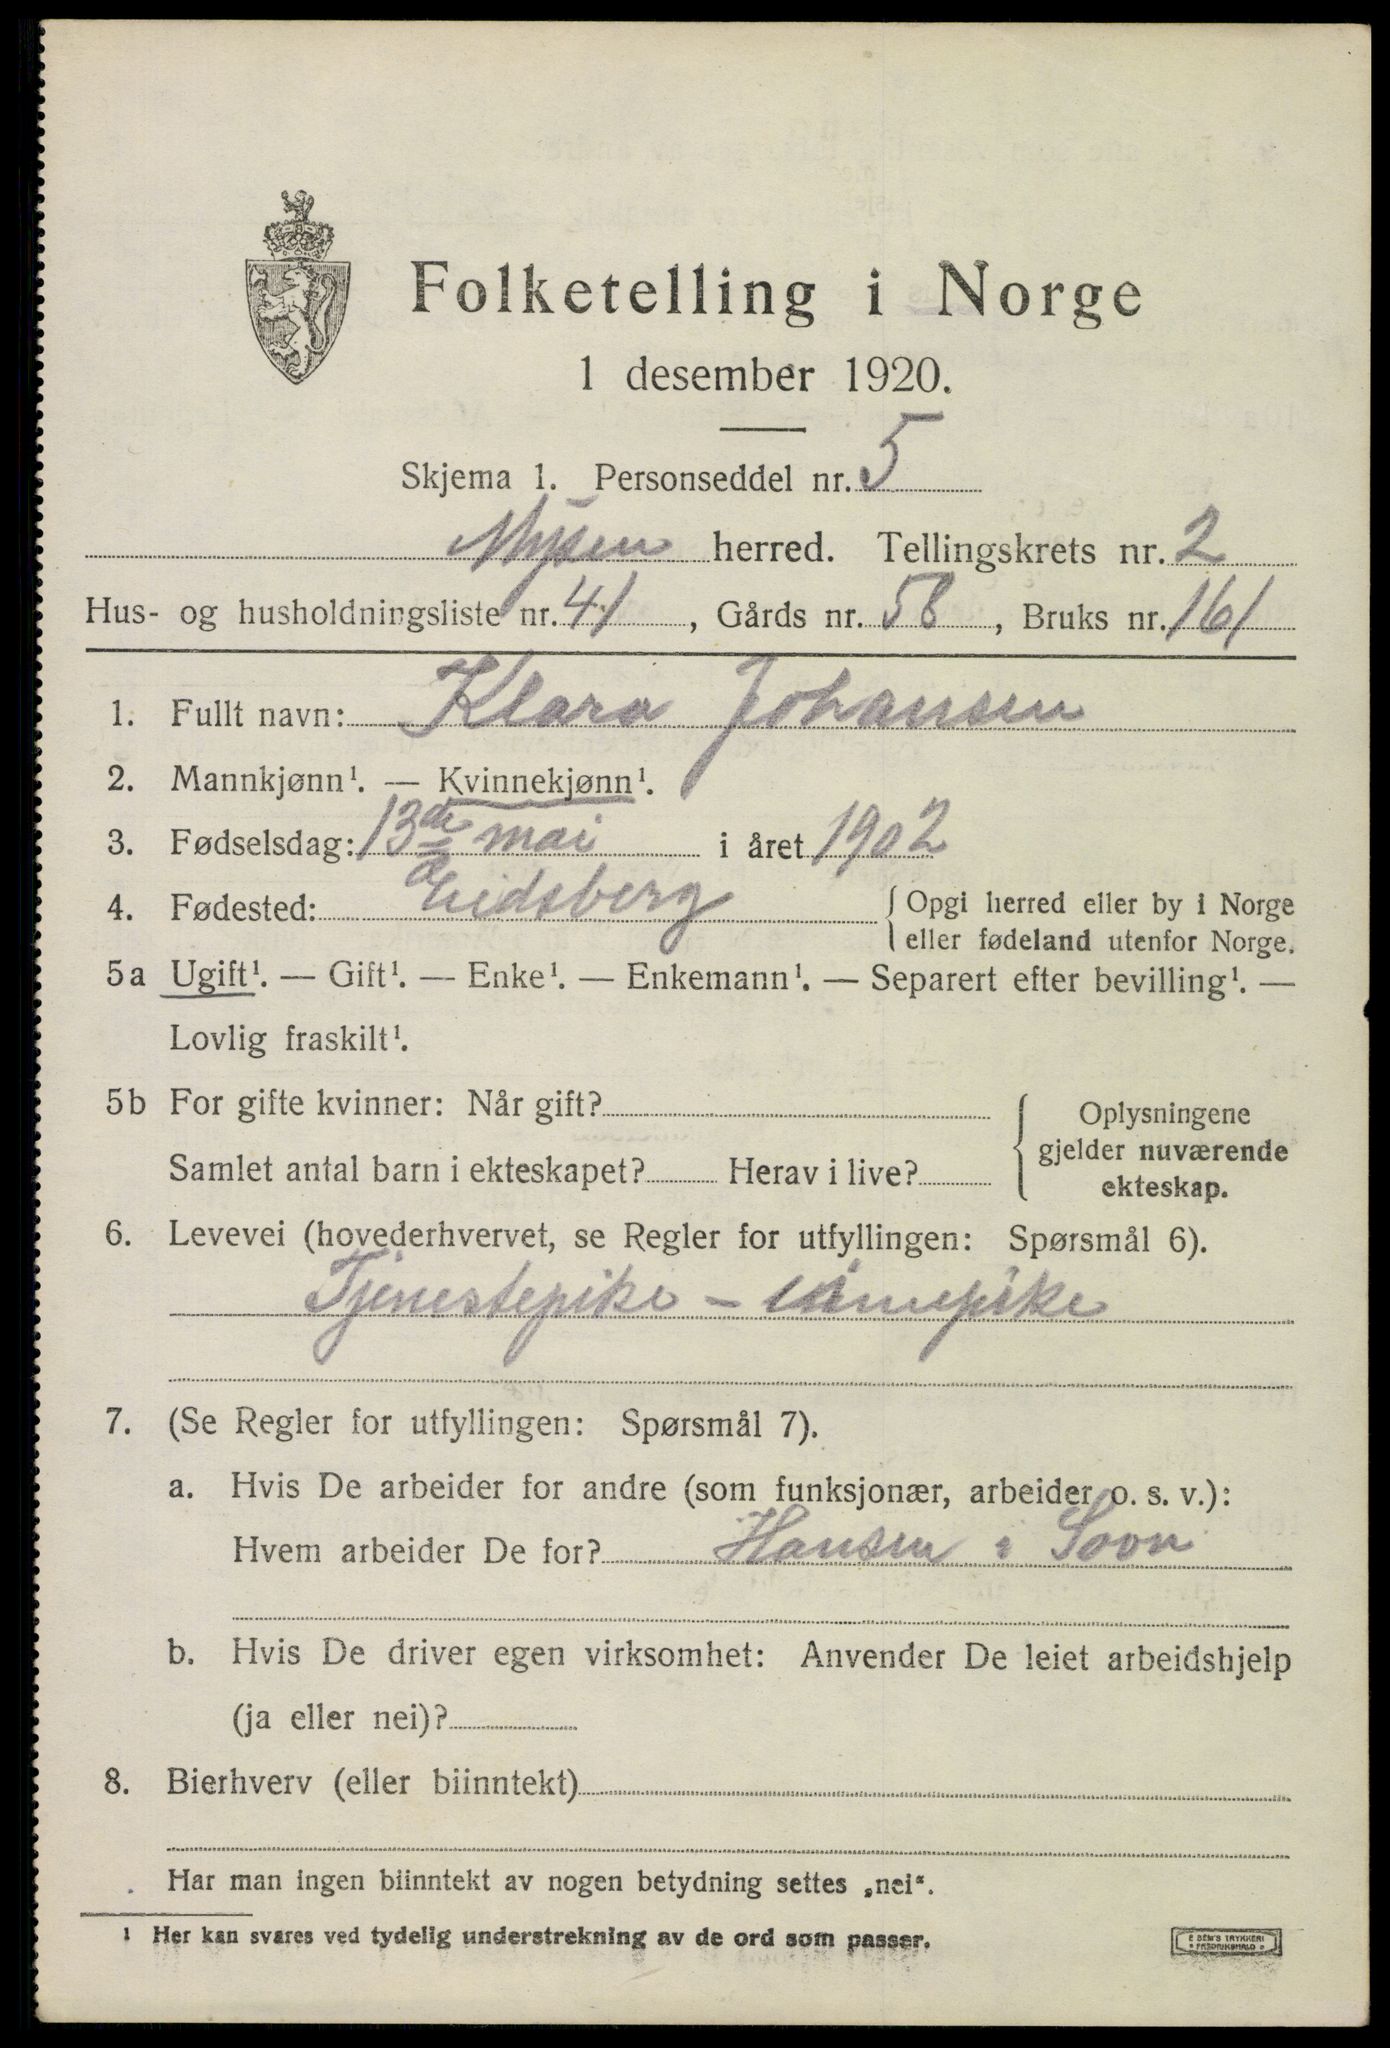 Folketelling i Norge
1 desember 1920.
Skjema 1. Personseddel nr. 5
Mysen herred. Tellingskrets nr. 2
Hus- og husholdningsliste nr. 41, Gårds nr. 58, Bruks nr. 161
1. Fullt navn: Klara Johansen
2. Mannkjønn¹. — Kvinnekjønn¹.
3. Fødselsdag: 13de mai i året 1902
4. Fødested: Eidsberg { Opgi herred eller by i Norge
eller fødeland utenfor Norge.
5a Ugift¹. — Gift¹. — Enke¹. — Enkemann¹. — Separert efter bevilling¹. —
Lovlig fraskilt¹.
5b For gifte kvinner: Når gift?
Samlet antal barn i ekteskapet? Herav i live?
Oplysningene
gjelder nuværende
ekteskap.
6. Levevei (hovederhvervet, se Regler for utfyllingen: Spørsmål 6).
Tjenestepike –
7. (Se Regler for utfyllingen: Spørsmål 7).
a. Hvis De arbeider for andre (som funksjonær, arbeider o. s. v.):
Hvem arbeider De for? Hansen i
b. Hvis De driver egen virksomhet: Anvender De leiet arbeidshjelp
(ja eller nei)?
8. Bierhverv (eller biinntekt)
Har man ingen biinntekt av nogen betydning settes „nei“.
¹ Her kan svares ved tydelig understrekning av de ord som passer.
E SEM'S TRYKKERI
FREDRIKSHALD